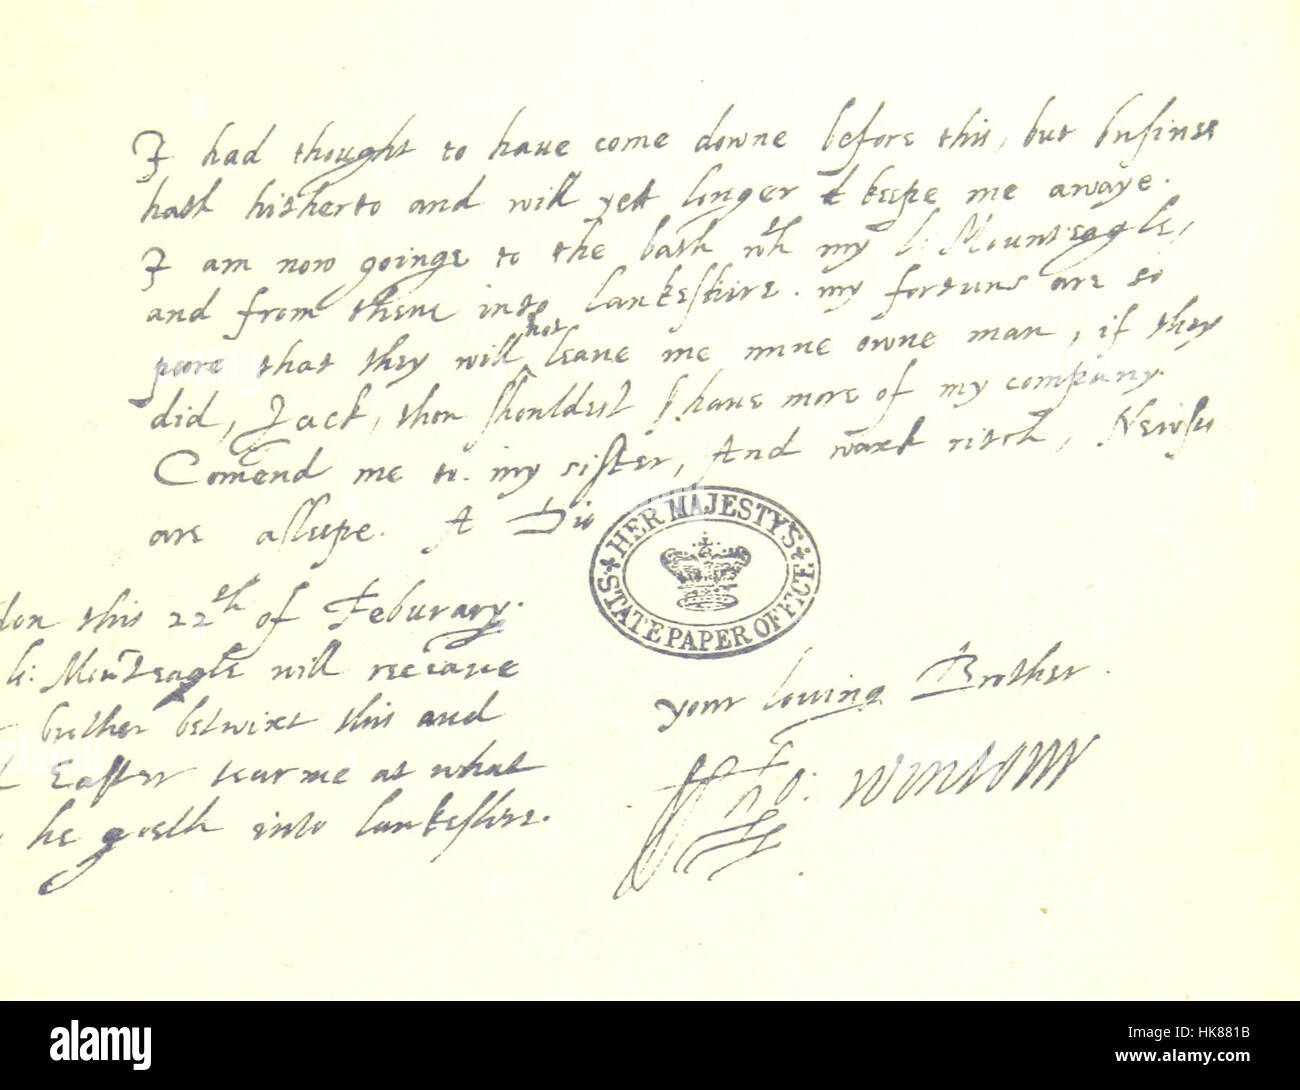 I had thought to haue come downe before this, but businss
hath hitherto and will yett longer keepe me awaye.
I am now goinge to the bath wth my l: Mounteagle,
and from thenc into Lankeshire. my fortuns are so
poore that they will not leaue me mine owne man, if they
did, Jack, thou shouldest haue more of my company.
Comend me to my sister, And ritch, Newse
are asleepe. A Diu
HER MAJESTY'S STATE PAPER OFFICE
don this 22th of Feburary.
l: Monteagle will receaue
brother betwixt this and
Easter tearme at what
he goeth into Lankeshire.
your louing Brother.
Tho: Wintour
alamy
Image ID: HK881B
www.alamy.com